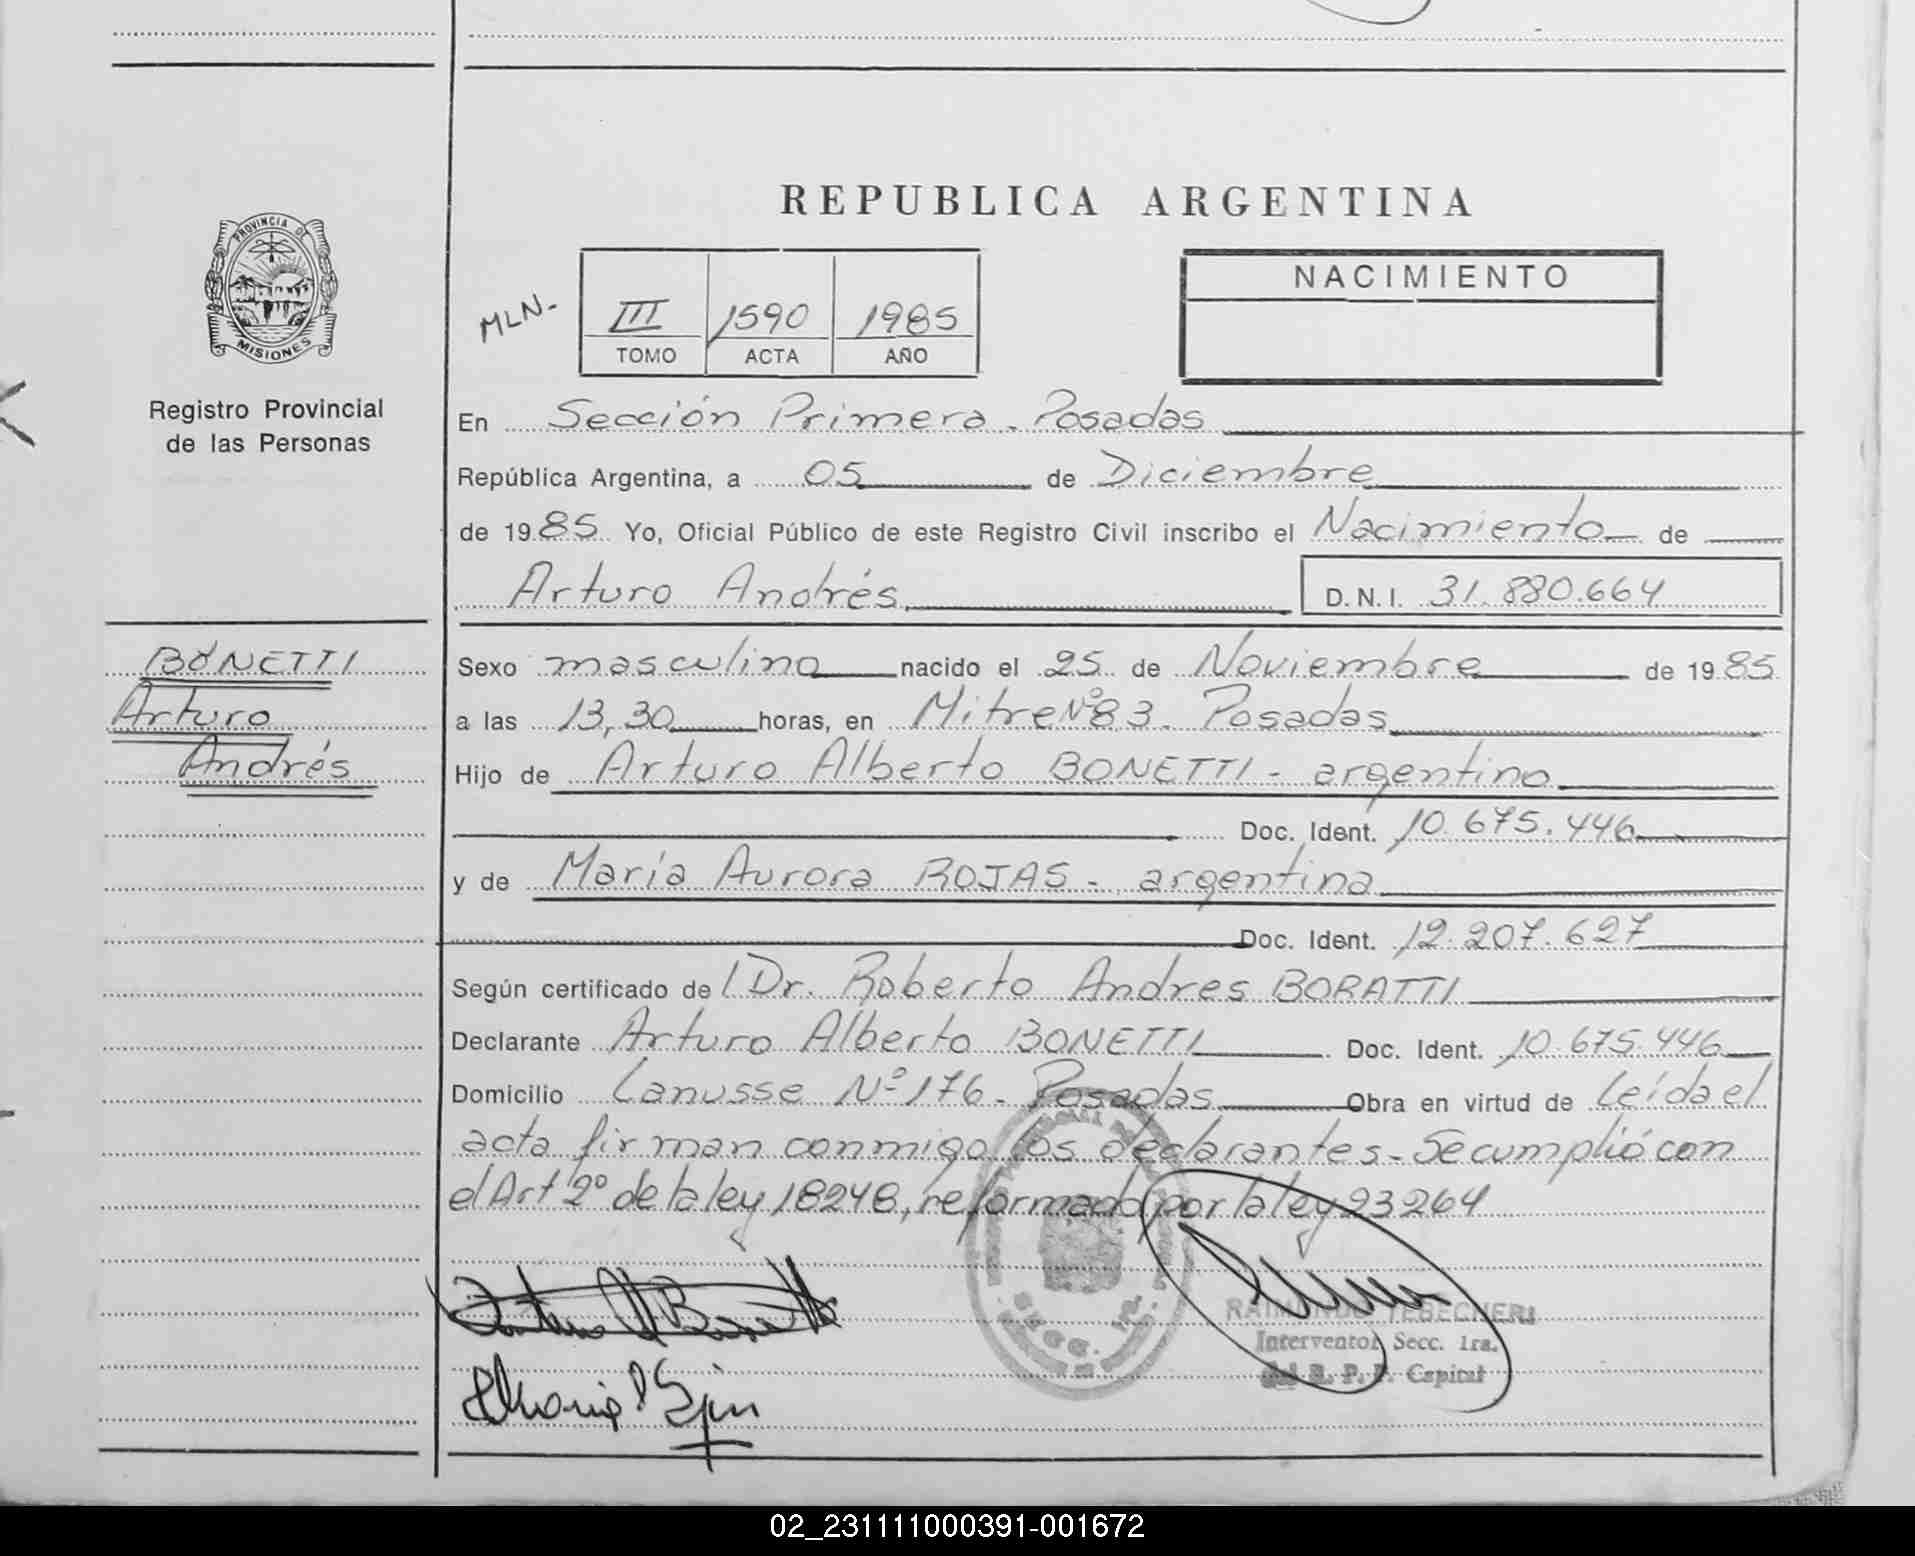 REPUBLICA ARGENTINA
PROVINCIA DE
MISIONES
Registro Provincial
de las Personas
MLN-
III 1590 1985
TOMO ACTA AÑO
NACIMIENTO
En Sección Primera - Posadas
República Argentina, a 05 de Diciembre
de 1985 Yo, Oficial Público de este Registro Civil inscribo el Nacimiento de
Arturo Andrés D.N.I. 31.880.664
BONETTI
Arturo
Andrés
Sexo masculino nacido el 25 de Noviembre de 1985
a las 13,30 horas, en Mitre Nº 83 - Posadas
Hijo de Arturo Alberto BONETTI - argentino
Doc. Ident. 10.675.446
y de María Aurora ROJAS - argentina
Doc. Ident. 12.207.627
Según certificado de Dr. Roberto Andres BORATTI
Declarante Arturo Alberto BONETTI Doc. Ident. 10.675.446
Domicilio Lanusse Nº 176 - Posadas Obra en virtud de Leída el
acta firman conmigo los declarantes - Se cumplió con
el Art 2º de la ley 18248, reformado por la ley 23264
RAIMUNDO TEBECHERI
Interventor Secc. 1ra.
Capital
02_231111000391-001672